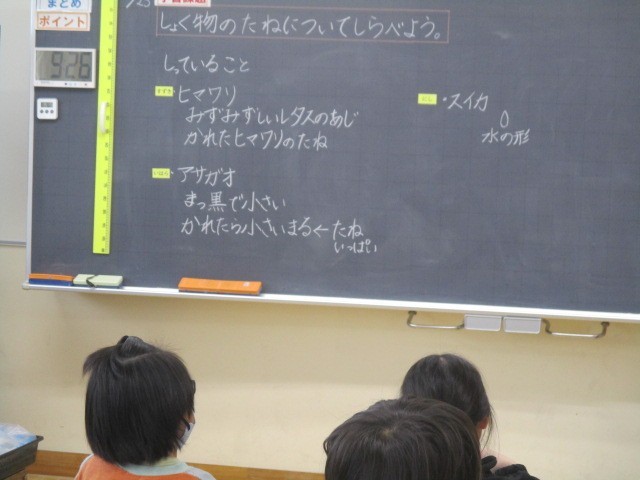 まとめ
ポイント
しょく物のたねについてしらべよう。
9:26
しっていること
ヒマワリ
みずみずしいレタスのあじ
かれたヒマワリのたね
・スイカ
水の形
アサガオ
まっ黒で小さい
かれたら小さいまる←たね
いっぱい